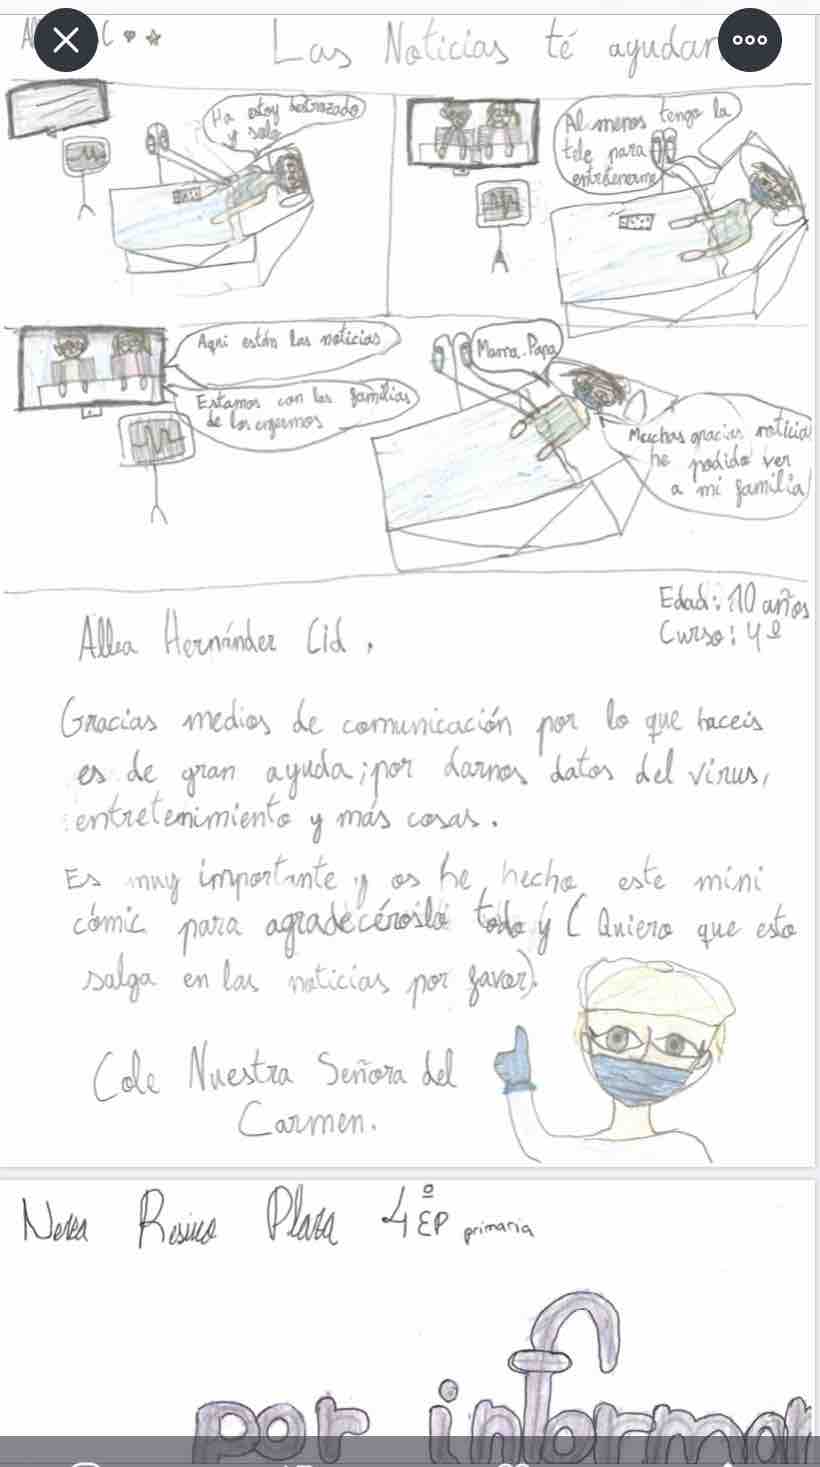 Las Noticias té ayudan
Ha estoy destrozado
y solo
Al menos tengo la
tele para
entretenerme
Aqui están las noticias
Estamos con las familias
de los enfermos
Mama. Papa
Muchas gracias noticia
he podido ver
a mi familia
Edad: 10 años
Curso: 4º
Hernández Cid.
Gracias medios de comunicación por lo que haceis
es de gran ayuda; por darnos datos del virus,
entretenimiento y más cosas.
Es muy importante y os he hecho este mini
cómic para agradecéroslo todo y (Quiero que esto
salga en las noticias por favor).
Cole Nuestra Señora del
Carmen.
Nerea Resino Plaza 4º EP primaria
por informar